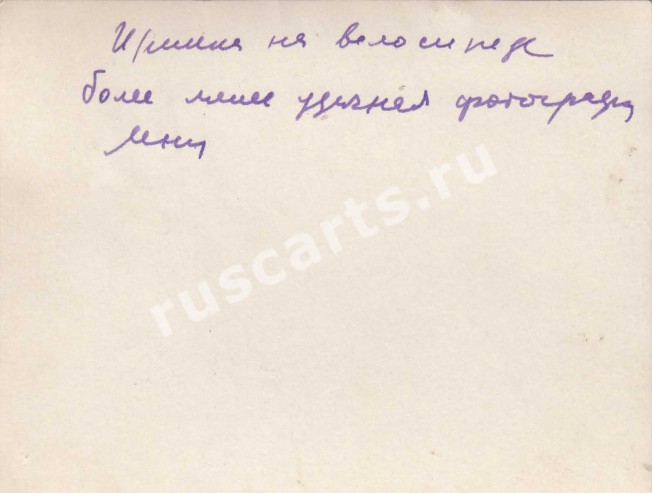 Иринка на велосипеде
более менее удачная фотография
ruscarts.ru